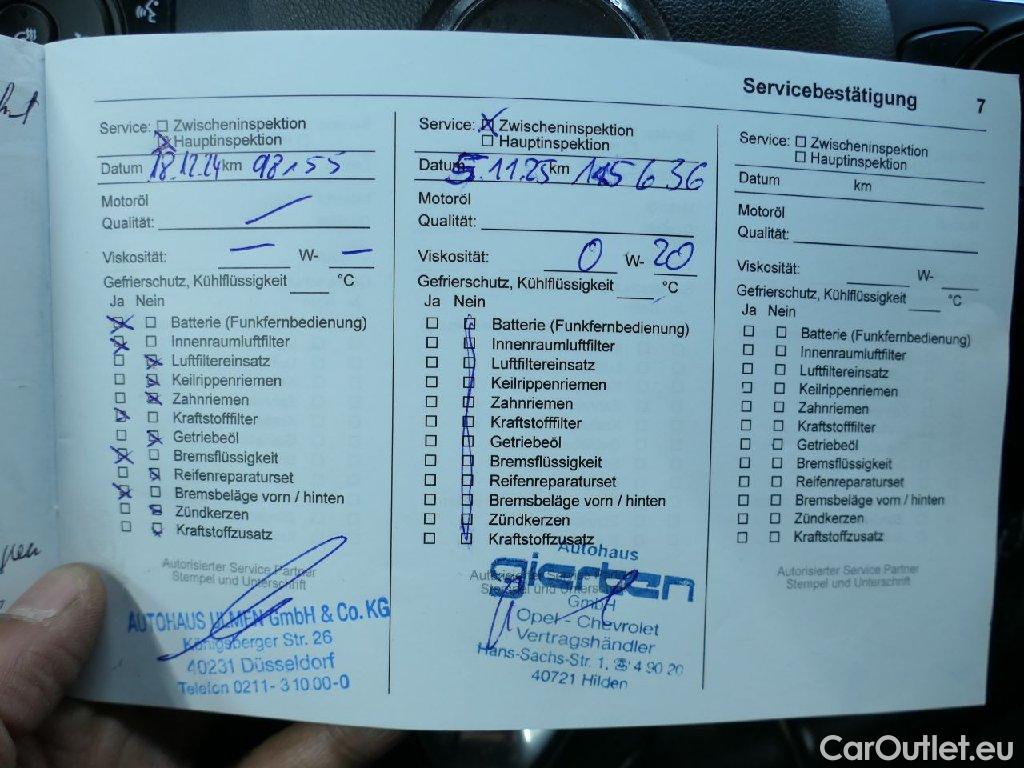 Servicebestätigung 7
Service: Zwischeninspektion
Hauptinspektion
Datum 18.12.24 km 98155
Motoröl
Qualität:
Viskosität: — W- —
Gefrierschutz, Kühlflüssigkeit °C
Ja Nein
Batterie (Funkfernbedienung)
Innenraumluftfilter
Luftfiltereinsatz
Keilrippenriemen
Zahnriemen
Kraftstofffilter
Getriebeöl
Bremsflüssigkeit
Reifenreparaturset
Bremsbeläge vorn / hinten
Zündkerzen
Kraftstoffzusatz
Autorisierter Service Partner
Stempel und Unterschrift
AUTOHAUS ULMEN GmbH & Co. KG
Königsberger Str. 26
40231 Düsseldorf
Telefon 0211-31000-0
Service: Zwischeninspektion
Hauptinspektion
Datum 5.11.25 km 115636
Motoröl
Qualität:
Viskosität: 0 W- 20
Gefrierschutz, Kühlflüssigkeit °C
Ja Nein
Batterie (Funkfernbedienung)
Innenraumluftfilter
Luftfiltereinsatz
Keilrippenriemen
Zahnriemen
Kraftstofffilter
Getriebeöl
Bremsflüssigkeit
Reifenreparaturset
Bremsbeläge vorn / hinten
Zündkerzen
Kraftstoffzusatz
Autorisierter Service Partner
Stempel und Unterschrift
Autohaus
gierten
GmbH
Opel - Chevrolet
Vertragshändler
Hans-Sachs-Str. 1, ☎ 4 90 20
40721 Hilden
Service: Zwischeninspektion
Hauptinspektion
Datum km
Motoröl
Qualität:
Viskosität: W-
Gefrierschutz, Kühlflüssigkeit °C
Ja Nein
Batterie (Funkfernbedienung)
Innenraumluftfilter
Luftfiltereinsatz
Keilrippenriemen
Zahnriemen
Kraftstofffilter
Getriebeöl
Bremsflüssigkeit
Reifenreparaturset
Bremsbeläge vorn / hinten
Zündkerzen
Kraftstoffzusatz
Autorisierter Service Partner
Stempel und Unterschrift
CarOutlet.eu